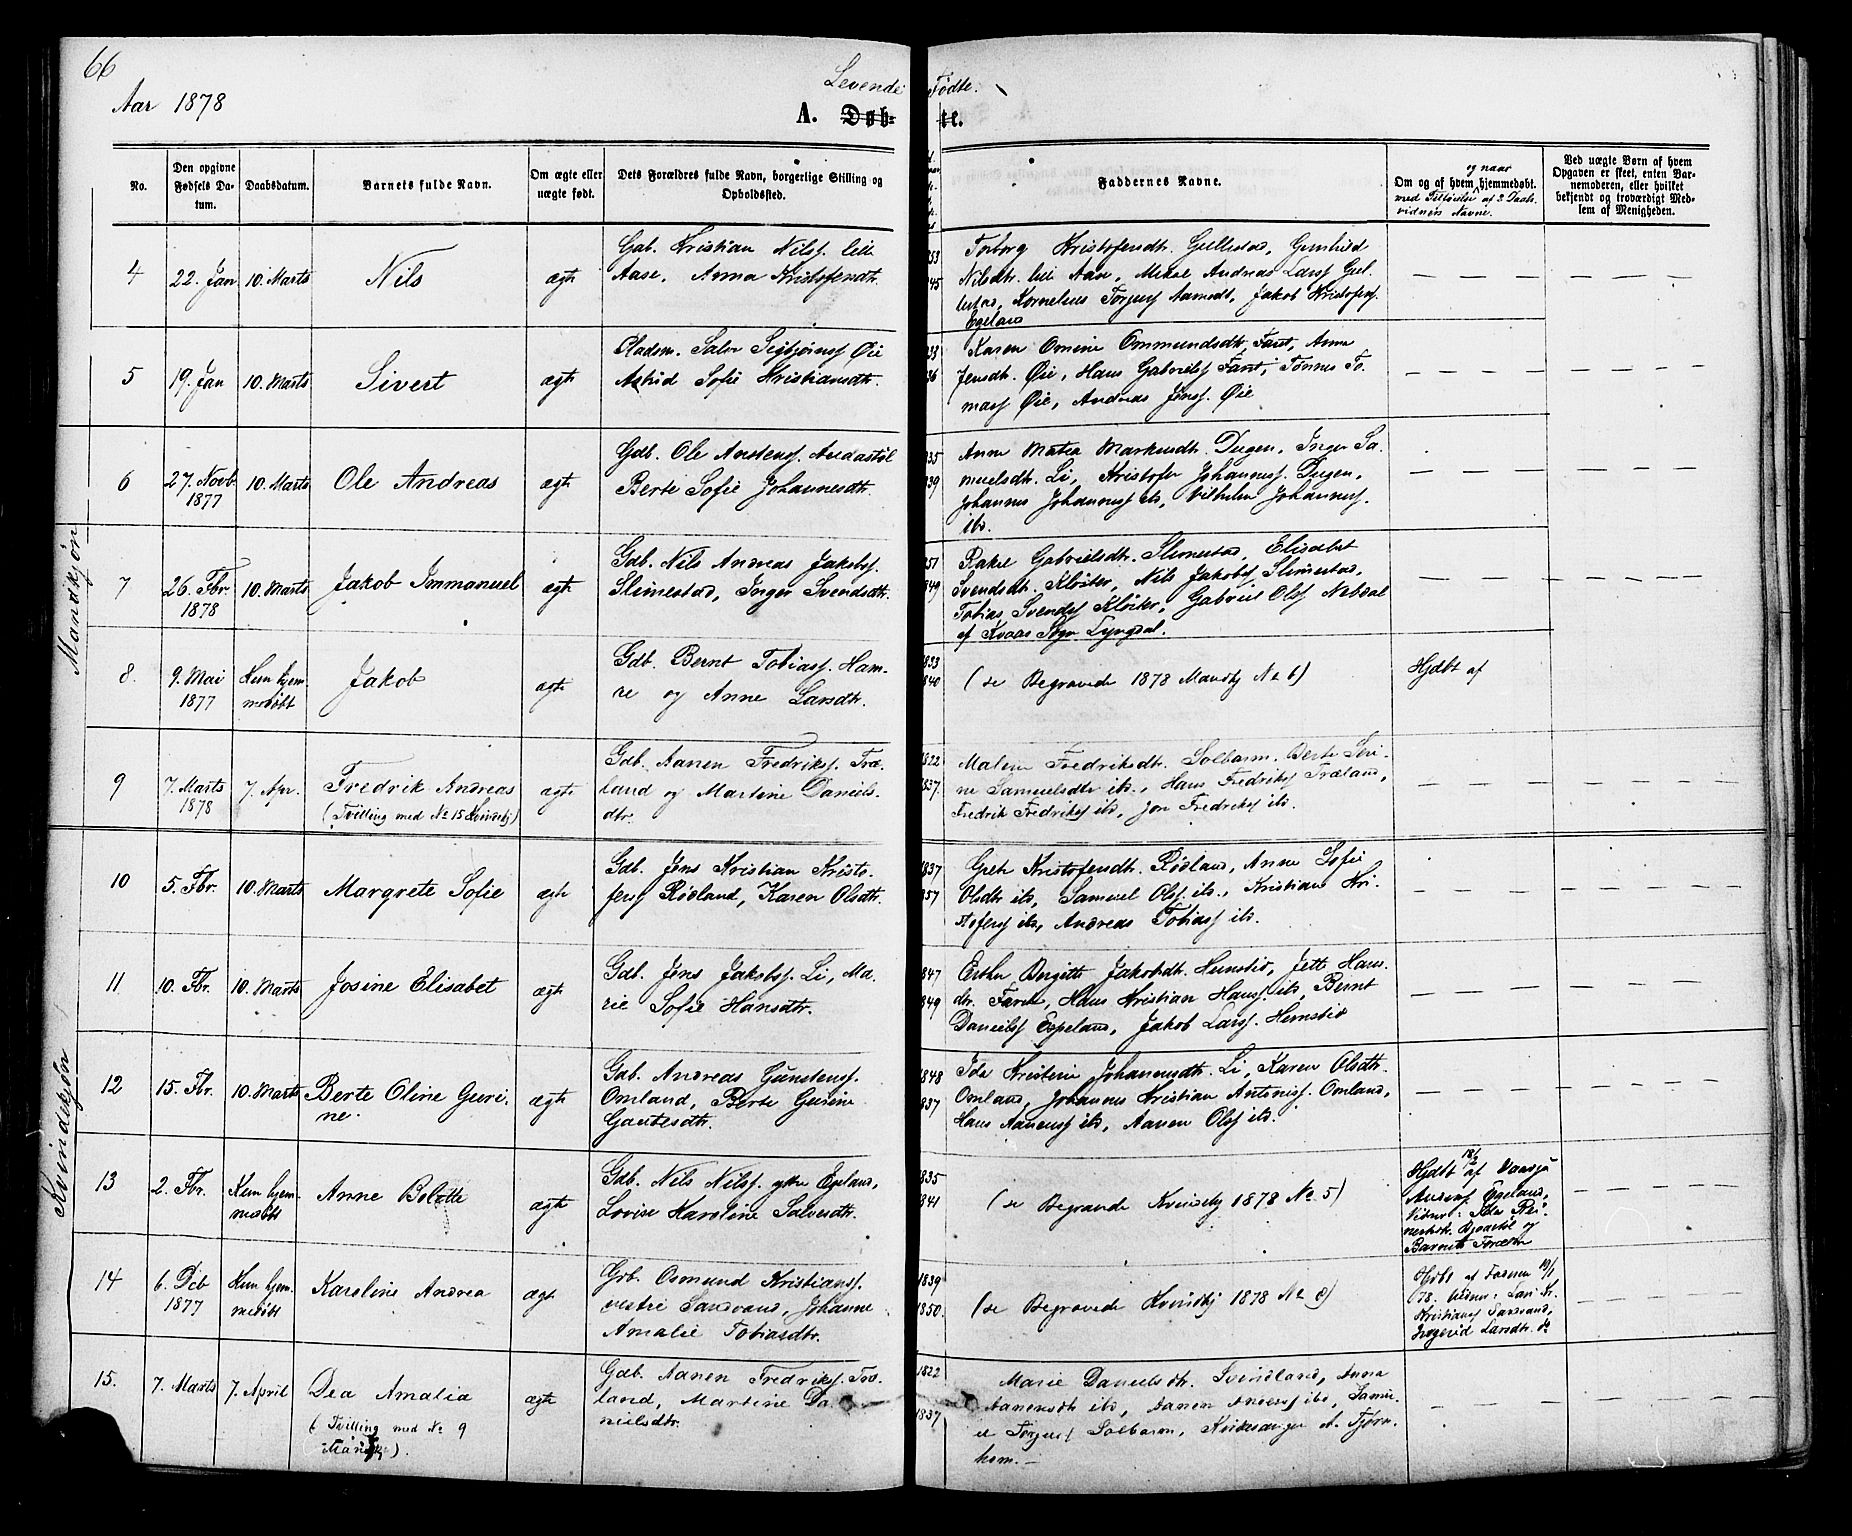 66
Aar 1878
Levende Fødte.
A. Døb- te.
No.
Den opgivne Fødsels Da-
tum.
Daabsdatum.
Barnets fulde Navn.
Om ægte eller
uægte født.
Dets Forældres fulde Navn, borgerlige Stilling og
Opholdssted.
Faddernes Navne.
og naar
Om og af hvem hjemmedøbt.
med Tilføielse af 2 Daabs-
vidners Navne.
Ved uægte Børn af hvem
Opgaven er skeet, enten Bar-
nemoderen, eller hvilket
bekjendt og troværdigt Med-
lem af Menigheden.
Mandkjøn
4
22. Jan
10. Marts
Nils
ægte
Gab. Kristian Nilss. lille
Aase, Anna Kristofersdtr.
53
45
Torborg Kristofersdtr. Gullestad, Gunhild
Nilsdtr. lille Aase, Mikal Andreas Larss Gul-
lestad, Kornelius Torjuss Aamodt, Jakob Kristofers.
Egeland
5
19. Jan
10. Marts
Sivert
ægte
Pladsm. Salve Sigbjørnss Øie
Astrid Sofie Kristiansdtr.
38
36
Karen Omine Ommundsdtr. , Anne
Jensdtr. Øie, Hans Gabriels , Tønnes To-
mass Øie, Andreas Jenss. Øie
6
27. Novb
1877
10. Marts
Ole Andreas
ægte
Gdb. Ole
Berte Sofie Johannesdtr.
35
39
Anne Markusdtr. Dugen, Inger Sa-
muelsdtr. Li, Kristofer Johanness. Dugen,
Johannes Johanness ibd, Vilhelm Johanness.
ibd.
7
26. Fbr.
1878
10. Marts
Jakob Immanuel
ægte
Gdb. Nils Andreas Jakobs.
Slimestad, Inger Svendsdtr.
51
49
Rakel Gabrielsdtr. Slimestad, Elisabet
Svendsdtr. Kloster, Nils Jakobs Slimestad,
Tobias Svends Kloster, Gabriel Olss Nebdal
af Kvaas Sogn Lyngdal.
8.
9. Mai
1877
Kun hjem-
medøbt
Jakob
ægte
Gdb. Bernt Tobiass. Ham-
re og Anne Larsdtr.
833
840
(se Begravede 1878 Mandkj No 6)
Hjdbt af
9
7. Marts
1878
7. Apr.
Fredrik Andreas
(Tvilling med No 15 Kvindekj)
ægte
Gdb. Aanen Fredrikss. Træ-
land og Martine Daniels-
dtr.
1822
1837.
Malene Fredriksdtr. Solbærm. Berte Seri-
ne Samuelsdtr ibd., Hans Fredrikss Træland,
Fredrik Fredrikss ibd, Jon Fredrikss ibd.
Kvindekjøn
10
5. Fbr.
10. Marts
Margrete Sofie
ægte
Gdb. Jens Kristian Kristo-
ferss Rødland, Karen Olsdtr.
1837
857
Grete Kristofersdtr. Rødland, Anne Sofie
Olsdtr ibd, Samuel Olss. ibd., Kristian Kri-
stoferss ibd, Andreas Tobiass ibd.
11
10. Fbr.
10. Marts
Josine Elisabet
ægte
Gdb. Jens Jakobss. Li, Ma-
rie Sofie Hansdtr.
1847
1849
Ester Birgitte Jakobsdtr. Hemstød, Jette Hans-
dtr. , Hans Kristian Hanss. ibd, Bernt
Danielss Espeland, Jakob Larss. Hemstød
12
15. Fbr.
10. Marts
Berte Oline Guri-
ne.
ægte
Gdb. Andreas Gunstenss.
Omland, Berte Gurine
Gautesdtr.
1848
1837
Ida Kristine Johannesdtr. Li, Karen Olsdtr.
Omland, Johannes Kristian Antonis. Omland,
Hans Aanenss ibd, Aanen Olss ibd.
13
2. Fbr.
Kun hjem-
medøbt
Anne Bolette
ægte
Gdb. Nils Nilss. ytre Egeland,
Lovise Karoline Salvesdtr.
1835
1841
(se Begravede Kvindekj 1878 No. 5)
18/2
Hjdbt af
Egeland,
Vidner: Ida Rei-
nertsdtr. og
Barnets Forældre
14
6. Dcb
1877
Kun hjem-
medøbt
Karoline Andrea
ægte
Gdb. Osmund Kristianss.
vestre Sandvand, Johanne
Amalie Tobiasdtr.
1839
1850.
(se Begravede Kvindkj 1878 No 2)
Hjdbt af Faderen 10/1
78. Vidner: Lars Kr.
Kristianss Sandvand,
Ingerid Larsdtr. do
15.
7. Marts
7. April
Dea Amalia
(Tvilling med No 9
Mandkj).
ægte
Gdb. Aanen Fredrikss. Træ-
land, Martine Da-
nielsdtr.
1822
1837
Marie Danielsdtr. Svindland, Anna
Aanensdtr ibd, Aanen Anderss ibd, Samu-
el Torjuss Solbærm, Kirkesanger A. Tjørn-
hom.